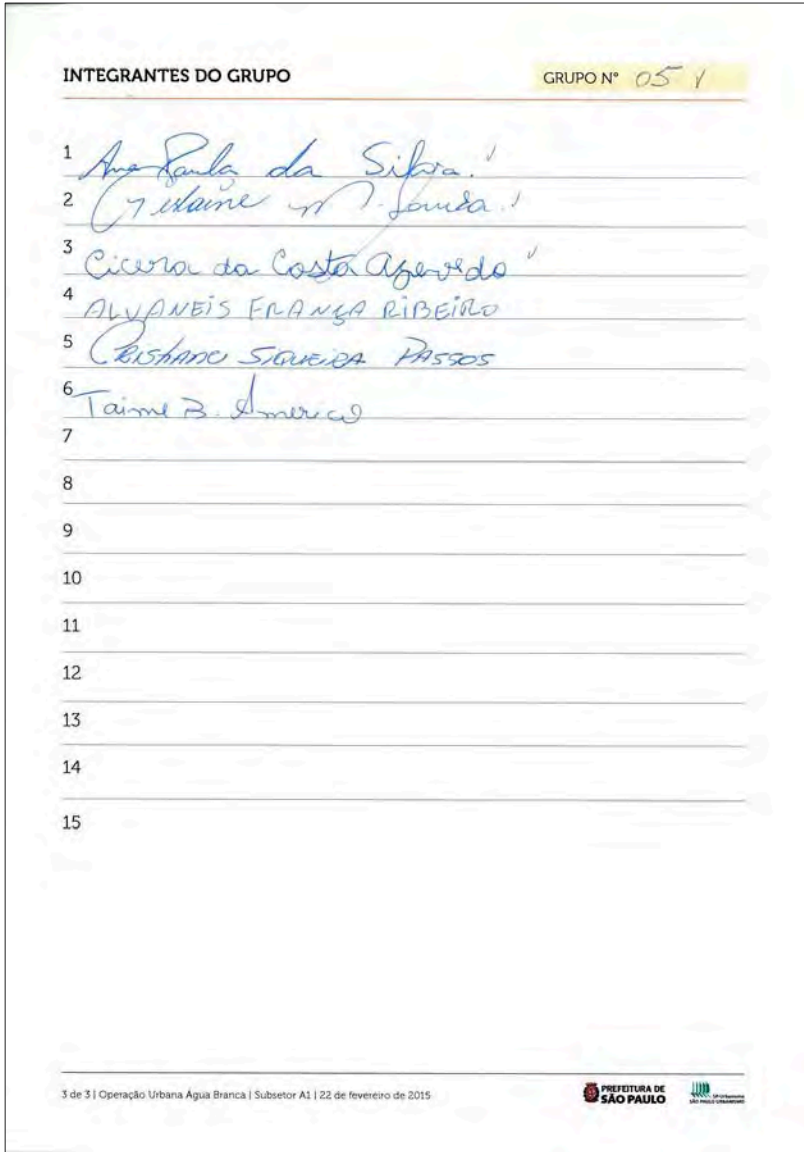 INTEGRANTES DO GRUPO
GRUPO Nº 05
1 Ana Paula da Silva
2 Gislaine M. Souza
3 Cicera da Costa Azevedo
4 ALVANEIS FRANÇA RIBEIRO
5 CRISTIANO SIQUEIRA PASSOS
6 Taime B. Americo
7
8
9
10
11
12
13
14
15
3 de 3 | Operação Urbana Água Branca | Subsetor A1 | 22 de fevereiro de 2015
PREFEITURA DE
SÃO PAULO
SP-Urbanismo
SÃO PAULO URBANISMO